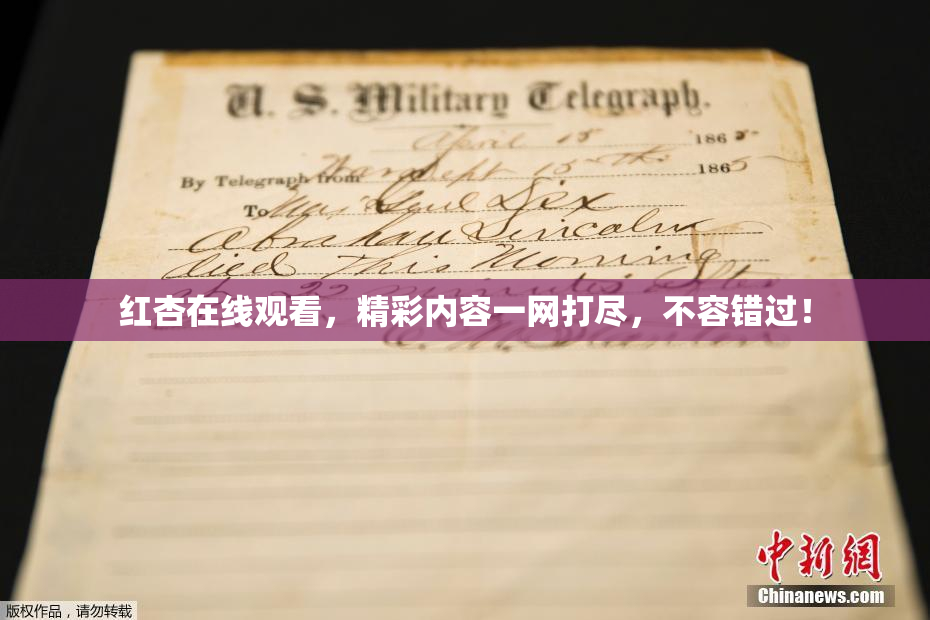 U. S. Military Telegraph.
April 15 1865
By Telegraph from War Dept 15th 1865
To Maj Genl Dix
Abraham Lincoln
died This Morning
at 22 minutes after
红杏在线观看，精彩内容一网打尽，不容错过！
E. M. Stanton
中新网
Chinanews.com
版权作品，请勿转载